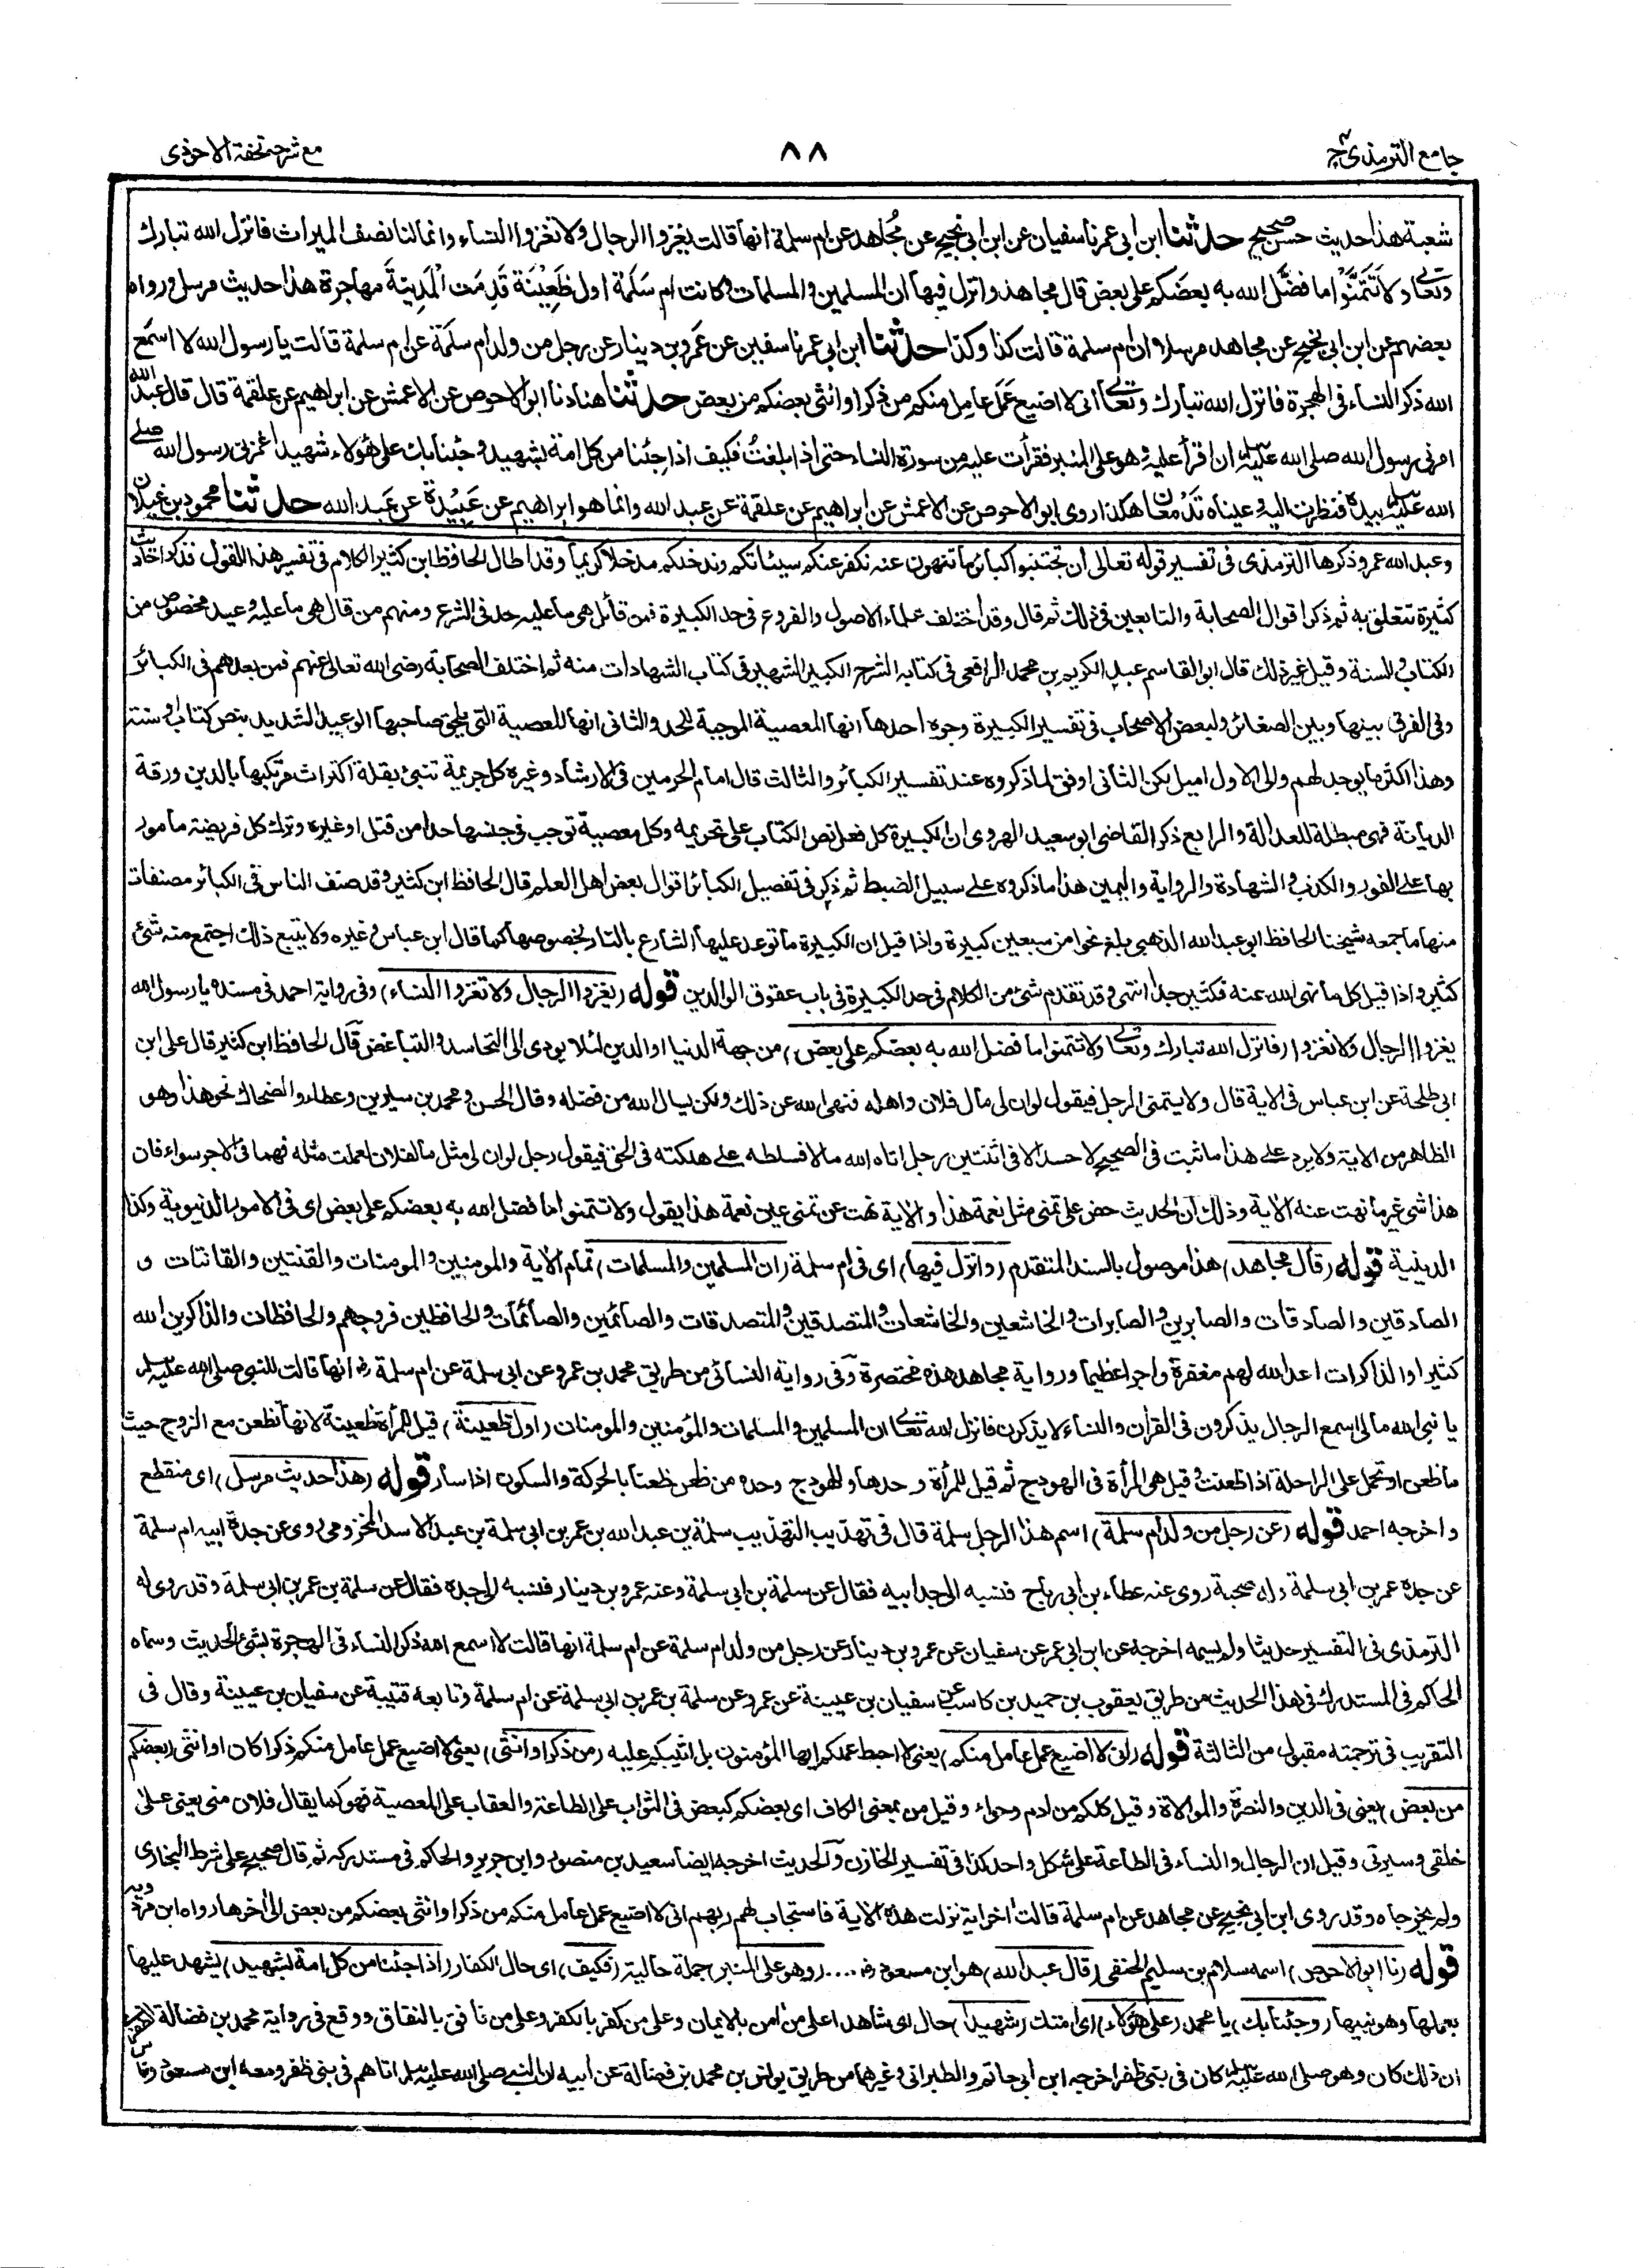 جامع الترمذي ج٤
٨٨
مع شرحه تحفة الاحوذي
شعبة هذا حديث حسن صحيح حدثنا ابن ابي عمر نا سفيان عن ابن ابي نجيح عن مجاهد عن ام سلمة انها قالت يغزوا الرجال ولا تغزوا النساء وانما لنا نصف الميراث فانزل الله تبارك
وتعالى ولا تتمنوا ما فضل الله به بعضكم على بعض قال مجاهد وانزل فيها ان المسلمين والمسلمات وكانت ام سلمة اول ظعينة قدمت المدينة مهاجرة هذا حديث مرسل ورواه
بعضهم عن ابن ابي نجيح عن مجاهد مرسلا وان ام سلمة قالت كذا وكذا حدثنا ابن ابي عمر نا سفين عن عمرو بن دينار عن رجل من ولد ام سلمة عن ام سلمة قالت يا رسول الله لا اسمع
الله ذكر النساء في الهجرة فانزل الله تبارك وتعالى اني لا اضيع عمل عامل منكم من ذكر او انثى بعضكم من بعض حدثنا هناد نا ابو الاحوص عن الاعمش عن ابراهيم عن علقمة قال قال عبد الله
امرني رسول الله صلى الله عليه وسلم ان اقرأ عليه وهو على المنبر فقرأت عليه من سورة النساء حتى اذا بلغت فكيف اذا جئنا من كل امة بشهيد وجئنا بك على هؤلاء شهيدا غمزني رسول الله صلى
الله عليه وسلم بيده فنظرت اليه وعيناه تدمعان هكذا روى ابو الاحوص عن الاعمش عن ابراهيم عن علقمة عن عبد الله وانما هو ابراهيم عن عبيدة عن عبد الله حدثنا محمود بن غيلان
وعبد الله عمرو ذكرها الترمذي في تفسير قوله تعالى ان تجتنبوا كبائر ما تنهون عنه نكفر عنكم سيئاتكم وندخلكم مدخلا كريما وقد اطال الحافظ ابن كثير الكلام في تفسير هذا القول فذكر احاديث
كثيرة تتعلق به ثم ذكر اقوال الصحابة والتابعين في ذلك ثم قال وقد اختلف علماء الاصول والفروع في حد الكبيرة فمن قائل هي ما عليه حد في الشرع ومنهم من قال هي ما عليه وعيد مخصوص من
الكتاب والسنة وقيل غير ذلك قال ابو القاسم عبد الكريم بن محمد الرافعي في كتابه الشرح الكبير الشهير في كتاب الشهادات منه ثم اختلف الصحابة رضي الله تعالى عنهم فمن بعدهم في الكبائر
وفي الفرق بينها وبين الصغائر ولبعض الاصحاب في تفسير الكبيرة وجوه احدها انها المعصية الموجبة للحد والثاني انها المعصية التي يلحق صاحبها الوعيد الشديد بنص كتاب او سنة
وهذا اكثر ما يوجد لهم والى الاول اميل لكن الثاني اوفق لما ذكروه عند تفسير الكبائر والثالث قال امام الحرمين في الارشاد وغيره كل جريمة تنبئ بقلة اكتراث مرتكبها بالدين ورقة
الديانة فهي مبطلة للعدالة والرابع ذكر القاضي ابو سعيد الهروي ان الكبيرة كل فعل نص الكتاب على تحريمه وكل معصية توجب في جنسها حدا من قتل او غيره وترك كل فريضة مأمور
بها على الفور والكذب والشهادة والرواية واليمين هذا ما ذكروه على سبيل الضبط ثم ذكر في تفصيل الكبائر اقوال بعض اهل العلم قال الحافظ ابن كثير وقد صنف الناس في الكبائر مصنفات
منها ما جمعه شيخنا الحافظ ابو عبد الله الذهبي بلغ نحوا من سبعين كبيرة واذا قيل ان الكبيرة ما توعد عليها الشارع بالنار لخصوصها كما قال ابن عباس وغيره ولا يتبع ذلك اجتمع منه شئ
كثير واذا قيل كل ما نهى الله عنه فكثير جدا انتهى وقد تقدم شئ من الكلام في حد الكبيرة في باب عقوق الوالدين قوله (يغزوا الرجال ولا تغزوا النساء) وفي رواية احمد في مسنده يا رسول الله
يغزوا الرجال ولا نغزوا (فانزل الله تبارك وتعالى ولا تتمنوا ما فضل الله به بعضكم على بعض) من جهة الدنيا او الدين لئلا يودي الى التحاسد والتباغض قال الحافظ ابن كثير قال علي ابن
ابي طلحة عن ابن عباس في الاية قال ولا يتمنى الرجل فيقول لو ان لي مال فلان واهله فنهى الله عن ذلك ولكن يسال الله من فضله وقال الحسن ومحمد بن سيرين وعطاء والضحاك نحو هذا وهو
الظاهر من الاية ولا يرد على هذا ما ثبت في الصحيح لا حسد الا في اثنتين رجل اتاه الله مالا فسلطه على هلكته في الحق فيقول رجل لو ان لي مثل ما لفلان لعملت مثله فهما في الاجر سواء فان
هذا شئ غير ما نهت عنه الاية وذلك ان الحديث حض على تمنى مثل نعمة هذا والاية نهت عن تمنى عين نعمة هذا يقول ولا تتمنوا ما فضل الله به بعضكم على بعض اي في الامور الدنيوية وكذا
الدينية قوله (قال مجاهد) هذا موصول بالسند المتقدم (وانزل فيها) اي في ام سلمة (ان المسلمين والمسلمات) تمام الاية والمومنين والمومنات والقنتين والقانتات و
الصادقين والصادقات والصابرين والصابرات والخاشعين والخاشعات والمتصدقين والمتصدقات والصائمين والصائمات والحافظين فروجهم والحافظات والذاكرين الله
كثيرا والذاكرات اعد الله لهم مغفرة واجرا عظيما ورواية مجاهد هذه مختصرة وفي رواية النسائي من طريق محمد بن عمرو عن ابي سلمة عن ام سلمة رض انها قالت للنبي صلى الله عليه وسلم
يا نبي الله مالي اسمع الرجال يذكرون في القران والنساء لا يذكرن فانزل الله تعالى ان المسلمين والمسلمات والمؤمنين والمومنات (اول ظعينة) قيل للمرأة ظعينة لانها تظعن مع الزوج حيث
ما ظعن او تحمل على الراحلة اذا ظعنت وقيل هي المرأة في الهودج ثم قيل للمرأة وحدها والهودج وحده من ظعن ظعنا بالحركة والسكون اذا سار قوله (هذا حديث مرسل) اي منقطع
واخرجه احمد قوله (عن رجل من ولد ام سلمة) اسم هذا الرجل سلمة قال في تهذيب التهذيب سلمة بن عبد الله بن عمر بن ابي سلمة بن عبد الاسد المخزومي روى عن جدة ابيه ام سلمة
عن جده عمر بن ابي سلمة وله صحبة روى عنه عطاء بن ابي رباح فنسبه الى جد ابيه فقال عن سلمة بن ابي سلمة وعنه عمرو بن دينار فنسبه الى جده فقال عن سلمة بن عمر بن ابي سلمة وقد روى له
الترمذي في التفسير حديثا ولم يسمه اخرجه عن ابن ابي عمر عن سفيان عن عمرو بن دينار عن رجل من ولد ام سلمة عن ام سلمة انها قالت لا اسمع الله ذكر النساء في الهجرة بشئ الحديث وسماه
الحاكم في المستدرك في هذا الحديث من طريق يعقوب بن حميد بن كاسب عن سفيان بن عيينة عن عمرو عن سلمة بن عمر بن ابي سلمة عن ام سلمة وتابعه قتيبة عن سفيان بن عيينة وقال في
التقريب في ترجمته مقبول من الثالثة قوله (اني لا اضيع عمل عامل منكم) يعني لا احبط عملكم ايها المؤمنون بل اثيبكم عليه (من ذكر او انثى) يعني لا اضيع عمل عامل منكم ذكرا كان او انثى (بعضكم
من بعض) يعني في الدين والنصرة والموالاة وقيل كلكم من ادم وحواء وقيل من بمعنى الكاف اي بعضكم كبعض في الثواب على الطاعة والعقاب على المعصية فهو كما يقال فلان مني يعني على
خلقي وسيرتي وقيل ان الرجال والنساء في الطاعة على شكل واحد كذا في تفسير الخازن والحديث اخرجه ايضا سعيد بن منصور وابن جرير والحاكم في مستدركه ثم قال صحيح على شرط البخاري
ولم يخرجاه وقد روى ابن ابي نجيح عن مجاهد عن ام سلمة قالت اخر اية نزلت هذه الاية فاستجاب لهم ربهم اني لا اضيع عمل عامل منكم من ذكر او انثى بعضكم من بعض الى اخرها رواه ابن مردويه
قوله (نا ابو الاحوص) اسمه سلام بن سليم الحنفي (قال عبد الله) هو ابن مسعود رض .... (وهو على المنبر) جملة حالية (فكيف) اي حال الكفار (اذا جئنا من كل امة بشهيد) يشهد عليها
بعملها وهو نبيها (وجئنا بك) يا محمد (على هؤلاء) اي امتك (شهيدا) حال اي شاهدا على من امن بالايمان وعلى من كفر بالكفر وعلى من نافق بالنفاق ووقع في رواية محمد بن فضالة الظفري
ان ذلك كان وهو صلى الله عليه وسلم كان في بني ظفر اخرجه ابن ابي حاتم والطبراني وغيرهما من طريق يونس بن محمد بن فضالة عن ابيه ان النبي صلى الله عليه وسلم اتاهم في بني ظفر ومعه ابن مسعود وناس